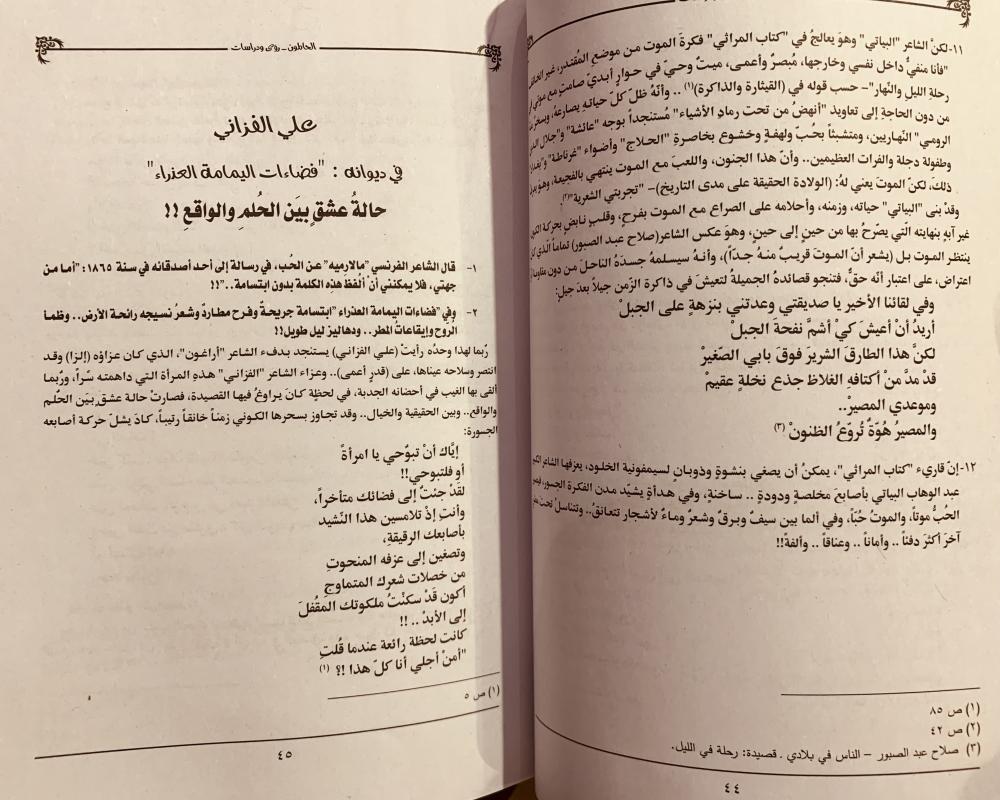 ١١-لكنْ الشاعر "البياتي" وهوَ يعالجُ في "كتاب المراثي" فكرةَ الموت من موضع المُقتدر، غير
"فأنا منفيٌّ داخل نفسي وخارجها، مُبصرٌ وأعمى، ميتٌ وحيّ في حوارِ أبديّ صامتٍ مع موتي
رحلةِ الليلِ والنّهار"- حسب قوله في (القيثارة والذاكرة)(١) .. وأنّهُ ظلّ كلّ حياتهِ يصارعهُ، ويسخرُ
من دون الحاجةِ إلى تعاويد "أنهضُ من تحت رمادِ الأشياء" مُستنجداً بوجه "عائشة" و"جلال
الرومي" النّهاريين، ومتشبثاً بحُبّ ولهفةٍ وخشوع بخاصرةِ "الحلاج" وأضواء "غرناطة"
وطفولة دجلة والفرات العظيمين.. وأنّ هذا الجنون، واللعبَ مع الموت ينتهي بالفجيعة،
ذلكَ، لكنّ الموتَ يعني لهُ: (الولادة الحقيقة على مدى التاريخ)– "تجربتي الشعرية"(٢)
وقدْ بنى "البياتي" حياته، وزمنه، وأحلامه على الصراع مع الموت بفرحٍ، وقلبٍ نابضٍ بحركة
غير آبهٍ بنهايته الّتي يصرّح بها من حينٍ إلى حينٍ، وهوَ عكس الشاعر(صلاح عبد الصبور) تماماً الّذي
ينتظر الموت بل (يشعر أنّ الموتَ قريبٌ منهُ جدّاً)، وأنهُ سيسلمهُ جسدَهُ الناحلَ من دون
اعتراض، على اعتبار أنّه حقٌّ، فتنجو قصائدهُ الجميلةُ لتعيشَ في ذاكرة الزّمن جيلاً بعدَ جيلٍ:
وفي لقائنا الأخير يا صديقتي وعدتني بنزهةٍ على الجبلْ
أريدُ أنْ أعيشَ كيْ أشمَّ نفحةَ الجبلْ
لكنَّ هذا الطارقَ الشريرَ فوقَ بابي الصّغيرْ
قدْ مدَّ منْ أكتافهِ الغلاظ جذع نخلةٍ عقيمْ
وموعدي المصيرْ..
والمصيرُ هُوّةٌ تُروّعُ الظنونْ (٣)
١٢-إنّ قاريء "كتاب المراثي"، يمكنُ أن يصغي بنشوةٍ وذوبانٍ لسيمفونية الخلود، يعزفها الشاعر
عبد الوهاب البياتي بأصابعَ مخلصةٍ ودودةٍ .. ساخنةٍ، وفي هدأةٍ يشيّد مدن الفكرة الجسور،
الحُبُّ موتاً، والموتُ حُبّاً، وفي ألما بين سيفٌ وبرقٌ وشعرٌ وماءٌ لأشجار تتعانقُ.. وتتناسلُ تحت
آخرَ أكثرَ دفئاً .. وأماناً .. وعناقاً .. وألفةً!!
(١) ص ٨٥
(٢) ص ٤٢
(٣) صلاح عبد الصبور – الناس في بلادي . قصيدة: رحلة في الليل.
٤٤
الحاطون – رؤى ودراسات
علي الفزاني
في ديوانه : "فضاءات اليمامة العذراء"
حالةُ عشقٍ بيَن الحُلمِ والواقعِ !!
١- قال الشاعر الفرنسي "مالارميه" عن الحُب، في رسالة إلى أحد أصدقائه في سنة ١٨٦٥: "أما من
جهتي، فلا يمكنني أن ألفظ هذه الكلمة بدون ابتسامة.."!!
٢- وفي "فضاءات اليمامة العذراء" ابتسامة جريحةٌ وفرح مطاردٌ وشعرٌ نسيجه رائحة الأرض.. وظمأ
الروح وإيقاعاتُ المطر.. ودهاليز ليل طويل!!
رُبما لهذا وحدُه رأيتُ (علي الفزاني) يستنجد بدفء الشاعر "أراغون"، الذي كان عزاؤه (إلزا) وقد
انتصر وسلاحه عيناها، على (قدرٍ أعمى).. وعزاء الشاعر "الفزاني" هذهِ المرأة التي داهمته سّراً، ورُبّما
ألقى بها الغيب في أحضانه الجدبة، في لحظةٍ كانَ يراوغُ فيها القصيدة، فصارتْ حالة عشقٍ بيَن الحُلم
والواقع.. وبين الحقيقية والخيال.. وقد تجاوز بسحرها الكوني زمناً خانقاً رتيباً، كادَ يشلّ حركة أصابعه
الجسورة:
إيَّاك أنْ تبوّحي يا امرأةْ
أو فلتبوحي!!
لقدْ جئتُ إلى فضائك متأخراً،
وأنتِ إذْ تلامسين هذا النّشيد
بأصابعك الرقيقة،
وتصغين إلى عزفه المنحوتِ
من خصلات شعرك المتماوجِ
أكون قَدْ سكنْتُ ملكوتك المقُفلَ
إلى الأبدْ .. !!
كانت لحظة رائعة عندما قُلتِ
"أمنْ أجلي أنا كلّ هذا !؟ (١)
(١) ص ٥
٤٥